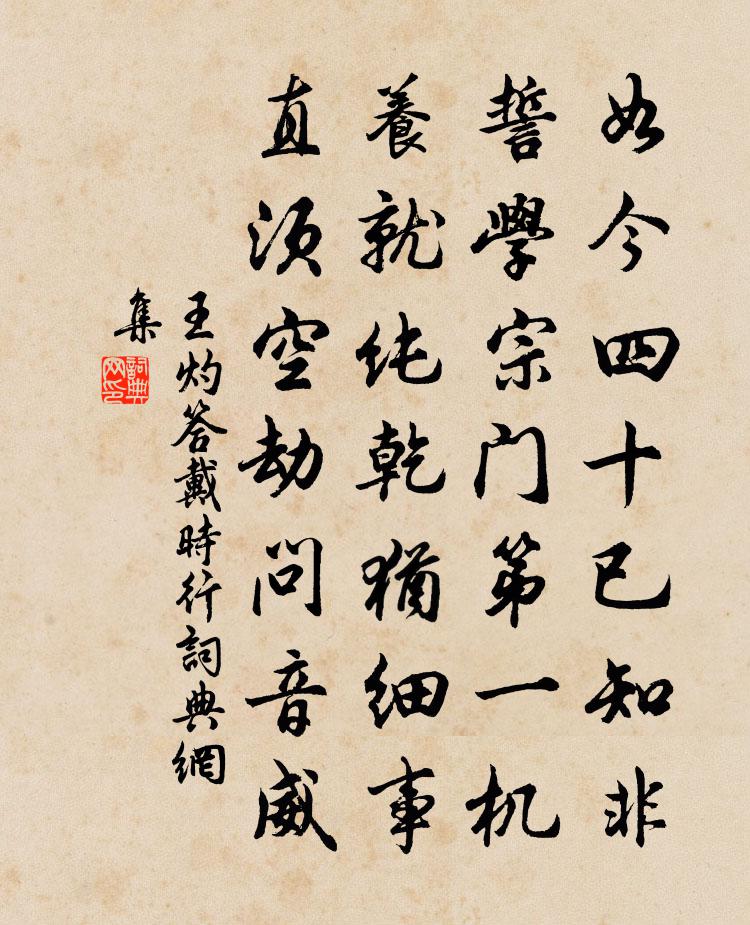 如今四十已知非
誓學宗门第一机
養就纯乾猶细事
直须空劫问音威
王灼答戴時行詞典網
集
詞典网印